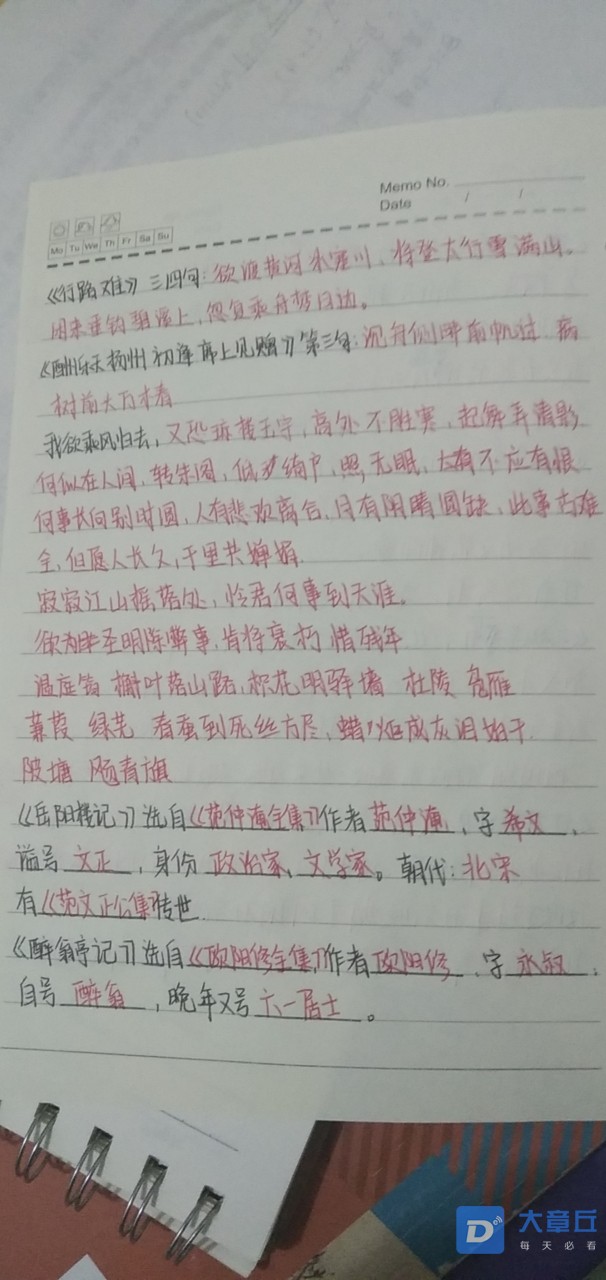 Memo No.
Date / /
Mo Tu We Th Fr Sa Su
《行路难》三四句:欲渡黄河冰塞川,将登太行雪满山。
闲来垂钓碧溪上,忽复乘舟梦日边。
《酬乐天扬州初逢席上见赠》第三句:沉舟侧畔千帆过 病
树前头万木春
我欲乘风归去,又恐琼楼玉宇,高处不胜寒,起舞弄清影
何似在人间,转朱阁,低绮户,照无眠,不应有恨
何事长向别时圆,人有悲欢离合,月有阴晴圆缺,此事古难
全,但愿人长久,千里共婵娟.
寂寂江山摇落处,怜君何事到天涯。
欲为圣明除弊事,肯将衰朽惜残年
温庭筠 槲叶落山路,枳花明驿墙 杜陵 凫雁
蒹葭 绿芜 春蚕到死丝方尽,蜡炬成灰泪始干.
陂塘 飐青旗
《岳阳楼记》选自《范仲淹全集》作者范仲淹,字希文,
谥号 文正,身份 政治家、文学家。朝代:北宋
有《范文正公集》传世
《醉翁亭记》选自《欧阳修全集》作者欧阳修,字永叔,
自号 醉翁,晚年又号六一居士。
大章丘
每天必看